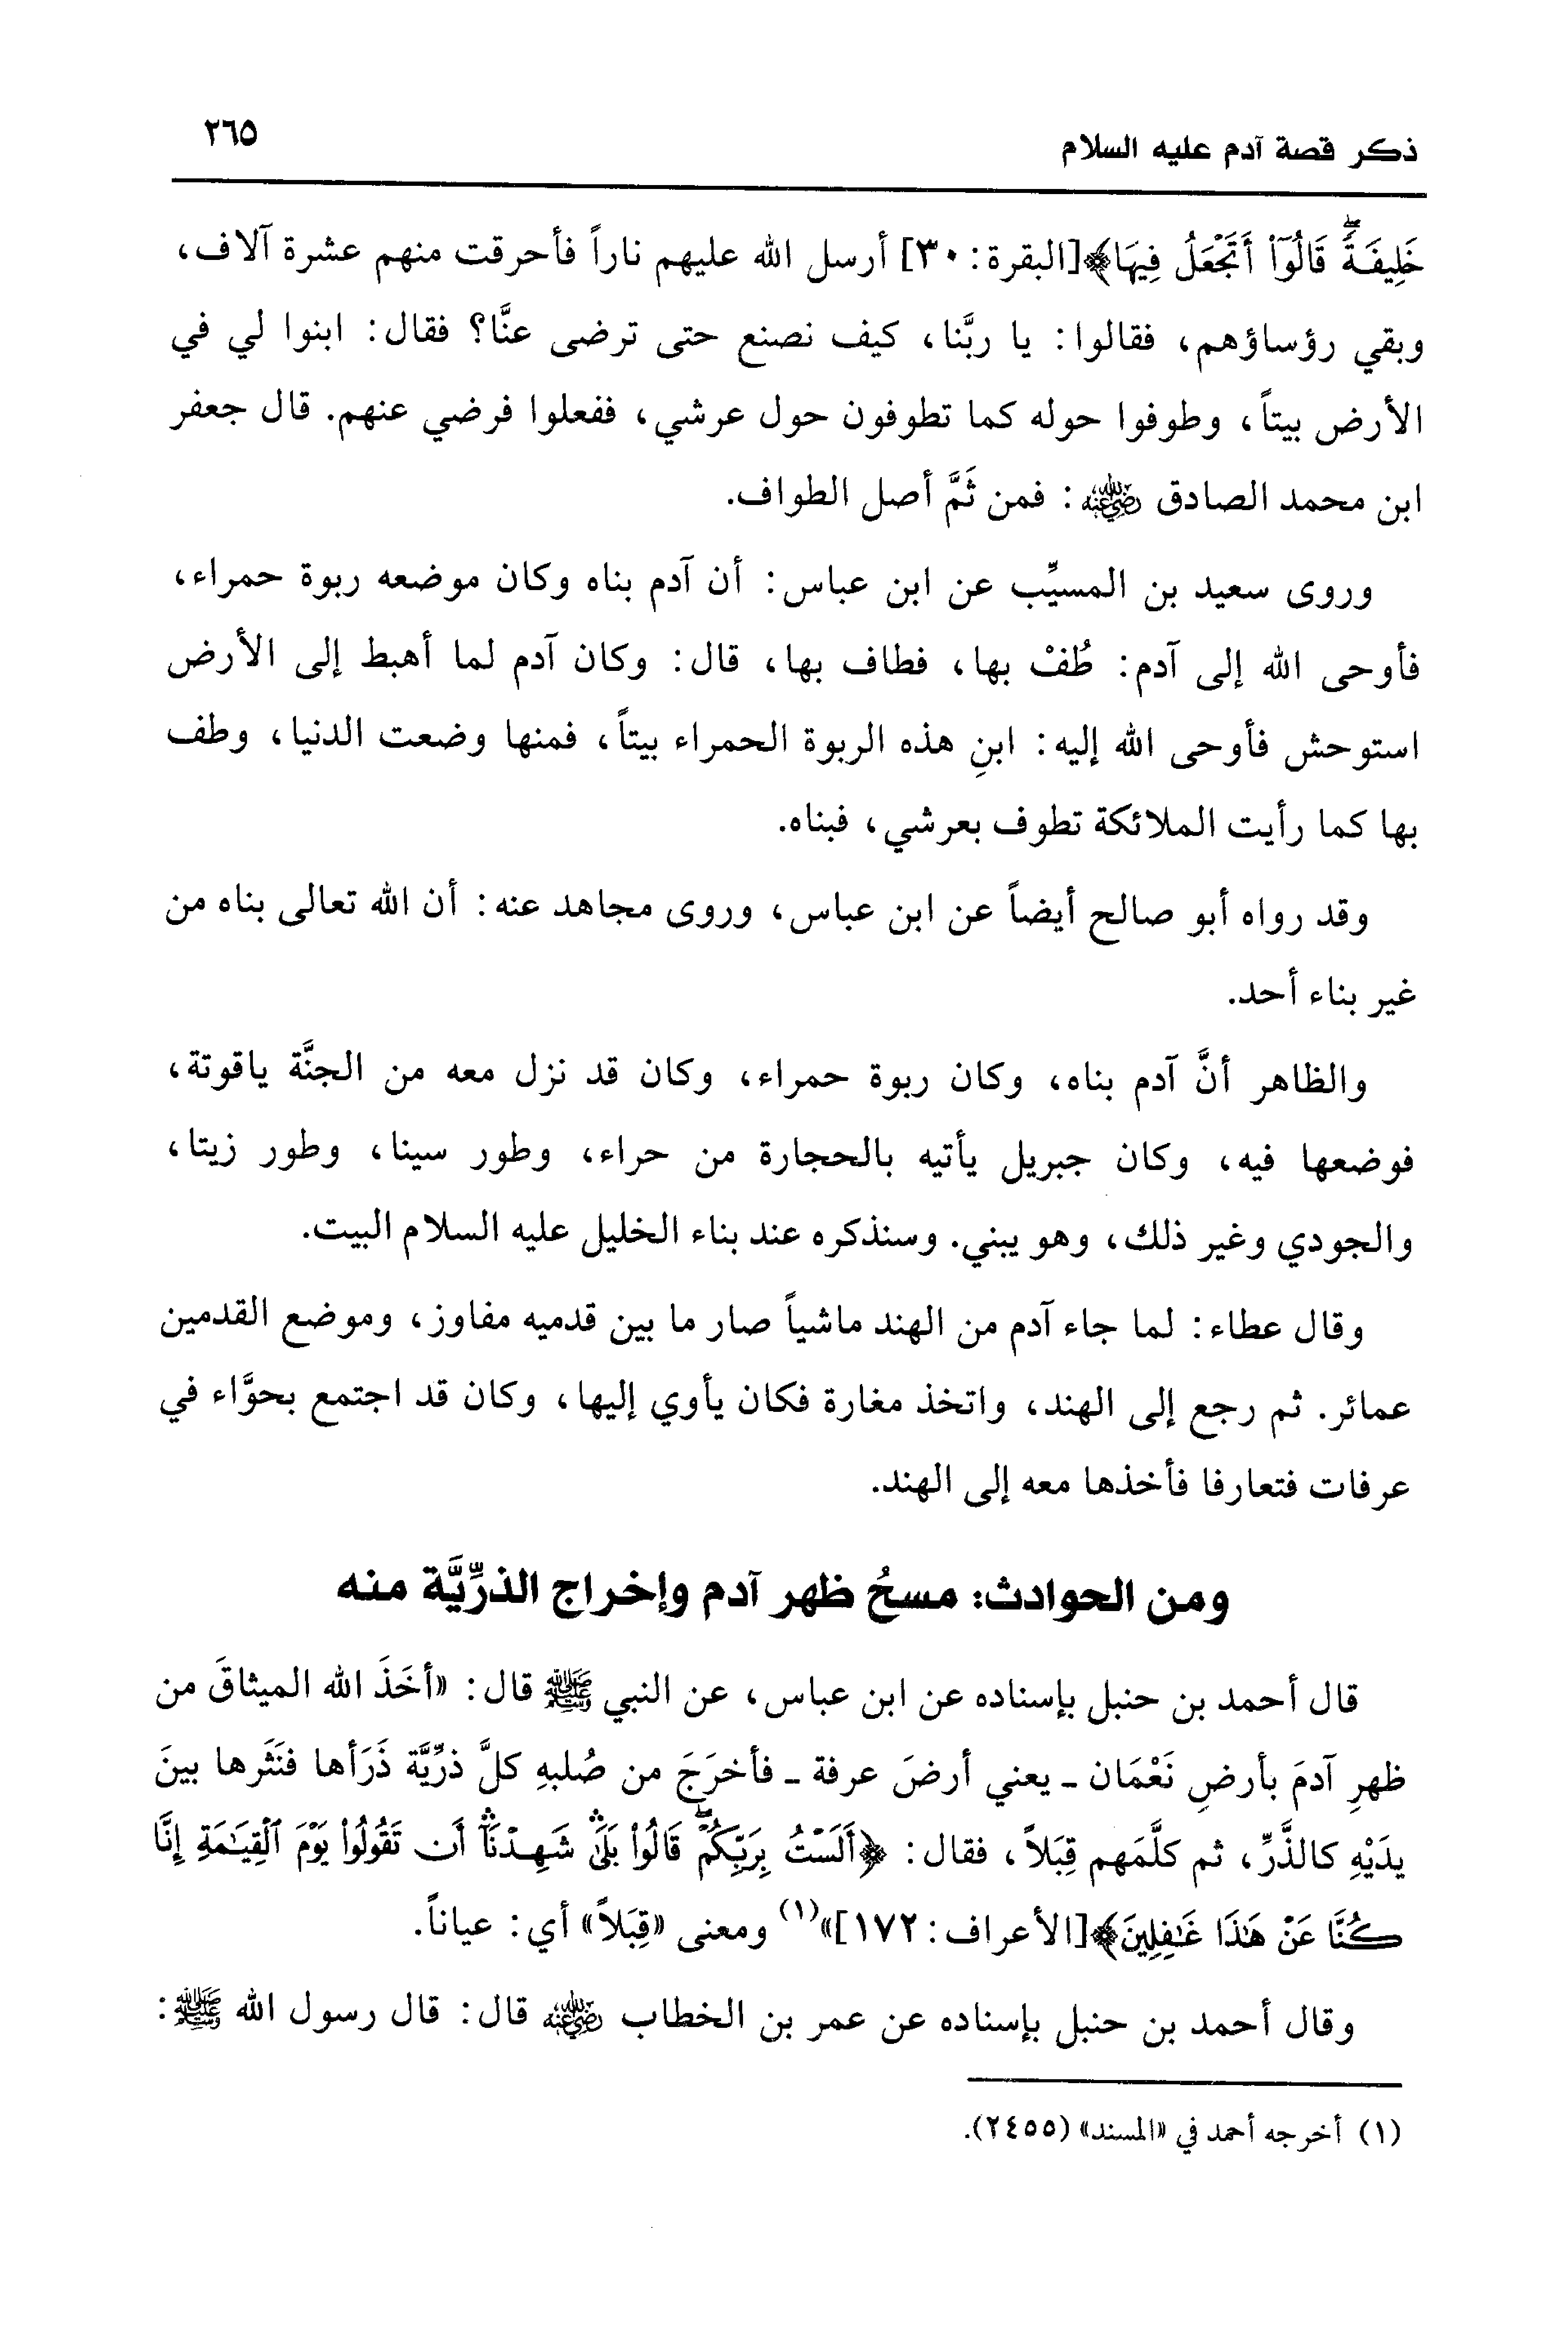 ذكر قصة آدم عليه السلام
٢٦٥
خَلِيفَةً قَالُوٓا أَتَجْعَلُ فِيهَا﴾[البقرة: ٣٠] أرسل الله عليهم ناراً فأحرقت منهم عشرة آلاف،
وبقي رؤساؤهم، فقالوا: يا ربَّنا، كيف نصنع حتى ترضى عنَّا؟ فقال: ابنوا لي في
الأرض بيتاً، وطوفوا حوله كما تطوفون حول عرشي، ففعلوا فرضي عنهم. قال جعفر
ابن محمد الصادق رضي الله عنه: فمن ثَمَّ أصل الطواف.
وروى سعيد بن المسيِّب عن ابن عباس: أن آدم بناه وكان موضعه ربوة حمراء،
فأوحى الله إلى آدم: طُفْ بها، فطاف بها، قال: وكان آدم لما أهبط إلى الأرض
استوحش فأوحى الله إليه: ابنِ هذه الربوة الحمراء بيتاً، فمنها وضعت الدنيا، وطف
بها كما رأيت الملائكة تطوف بعرشي، فبناه.
وقد رواه أبو صالح أيضاً عن ابن عباس، وروى مجاهد عنه: أن الله تعالى بناه من
غير بناء أحد.
والظاهر أنَّ آدم بناه، وكان ربوة حمراء، وكان قد نزل معه من الجنَّة ياقوتة،
فوضعها فيه، وكان جبريل يأتيه بالحجارة من حراء، وطور سينا، وطور زيتا،
والجودي وغير ذلك، وهو يبني. وسنذكره عند بناء الخليل عليه السلام البيت.
وقال عطاء: لما جاء آدم من الهند ماشياً صار ما بين قدميه مفاوز، وموضع القدمين
عمائر. ثم رجع إلى الهند، واتخذ مغارة فكان يأوي إليها، وكان قد اجتمع بحوَّاء في
عرفات فتعارفا فأخذها معه إلى الهند.
ومن الحوادث: مسحُ ظهر آدم وإخراج الذرِّيَّة منه
قال أحمد بن حنبل بإسناده عن ابن عباس، عن النبي ﷺ قال: «أخَذَ الله الميثاقَ من
ظهرِ آدمَ بأرضِ نَعْمَان ـ يعني أرضَ عرفة ـ فأخرَجَ من صُلبهِ كلَّ ذرِّيَّة ذَرَأها فنَثَرها بينَ
يدَيْهِ كالذَّرِّ، ثم كلَّمَهم قِبَلاً، فقال: ﴿أَلَسْتُ بِرَبِّكُمْ قَالُوا بَلَىٰ شَهِدْنَآ أَن تَقُولُوا يَوْمَ ٱلْقِيَٰمَةِ إِنَّا
كُنَّا عَنْ هَٰذَا غَٰفِلِينَ﴾[الأعراف: ١٧٢]»(١) ومعنى «قِبَلاً» أي: عياناً.
وقال أحمد بن حنبل بإسناده عن عمر بن الخطاب رضي الله عنه قال: قال رسول الله ﷺ:
(١) أخرجه أحمد في «المسند» (٢٤٥٥).